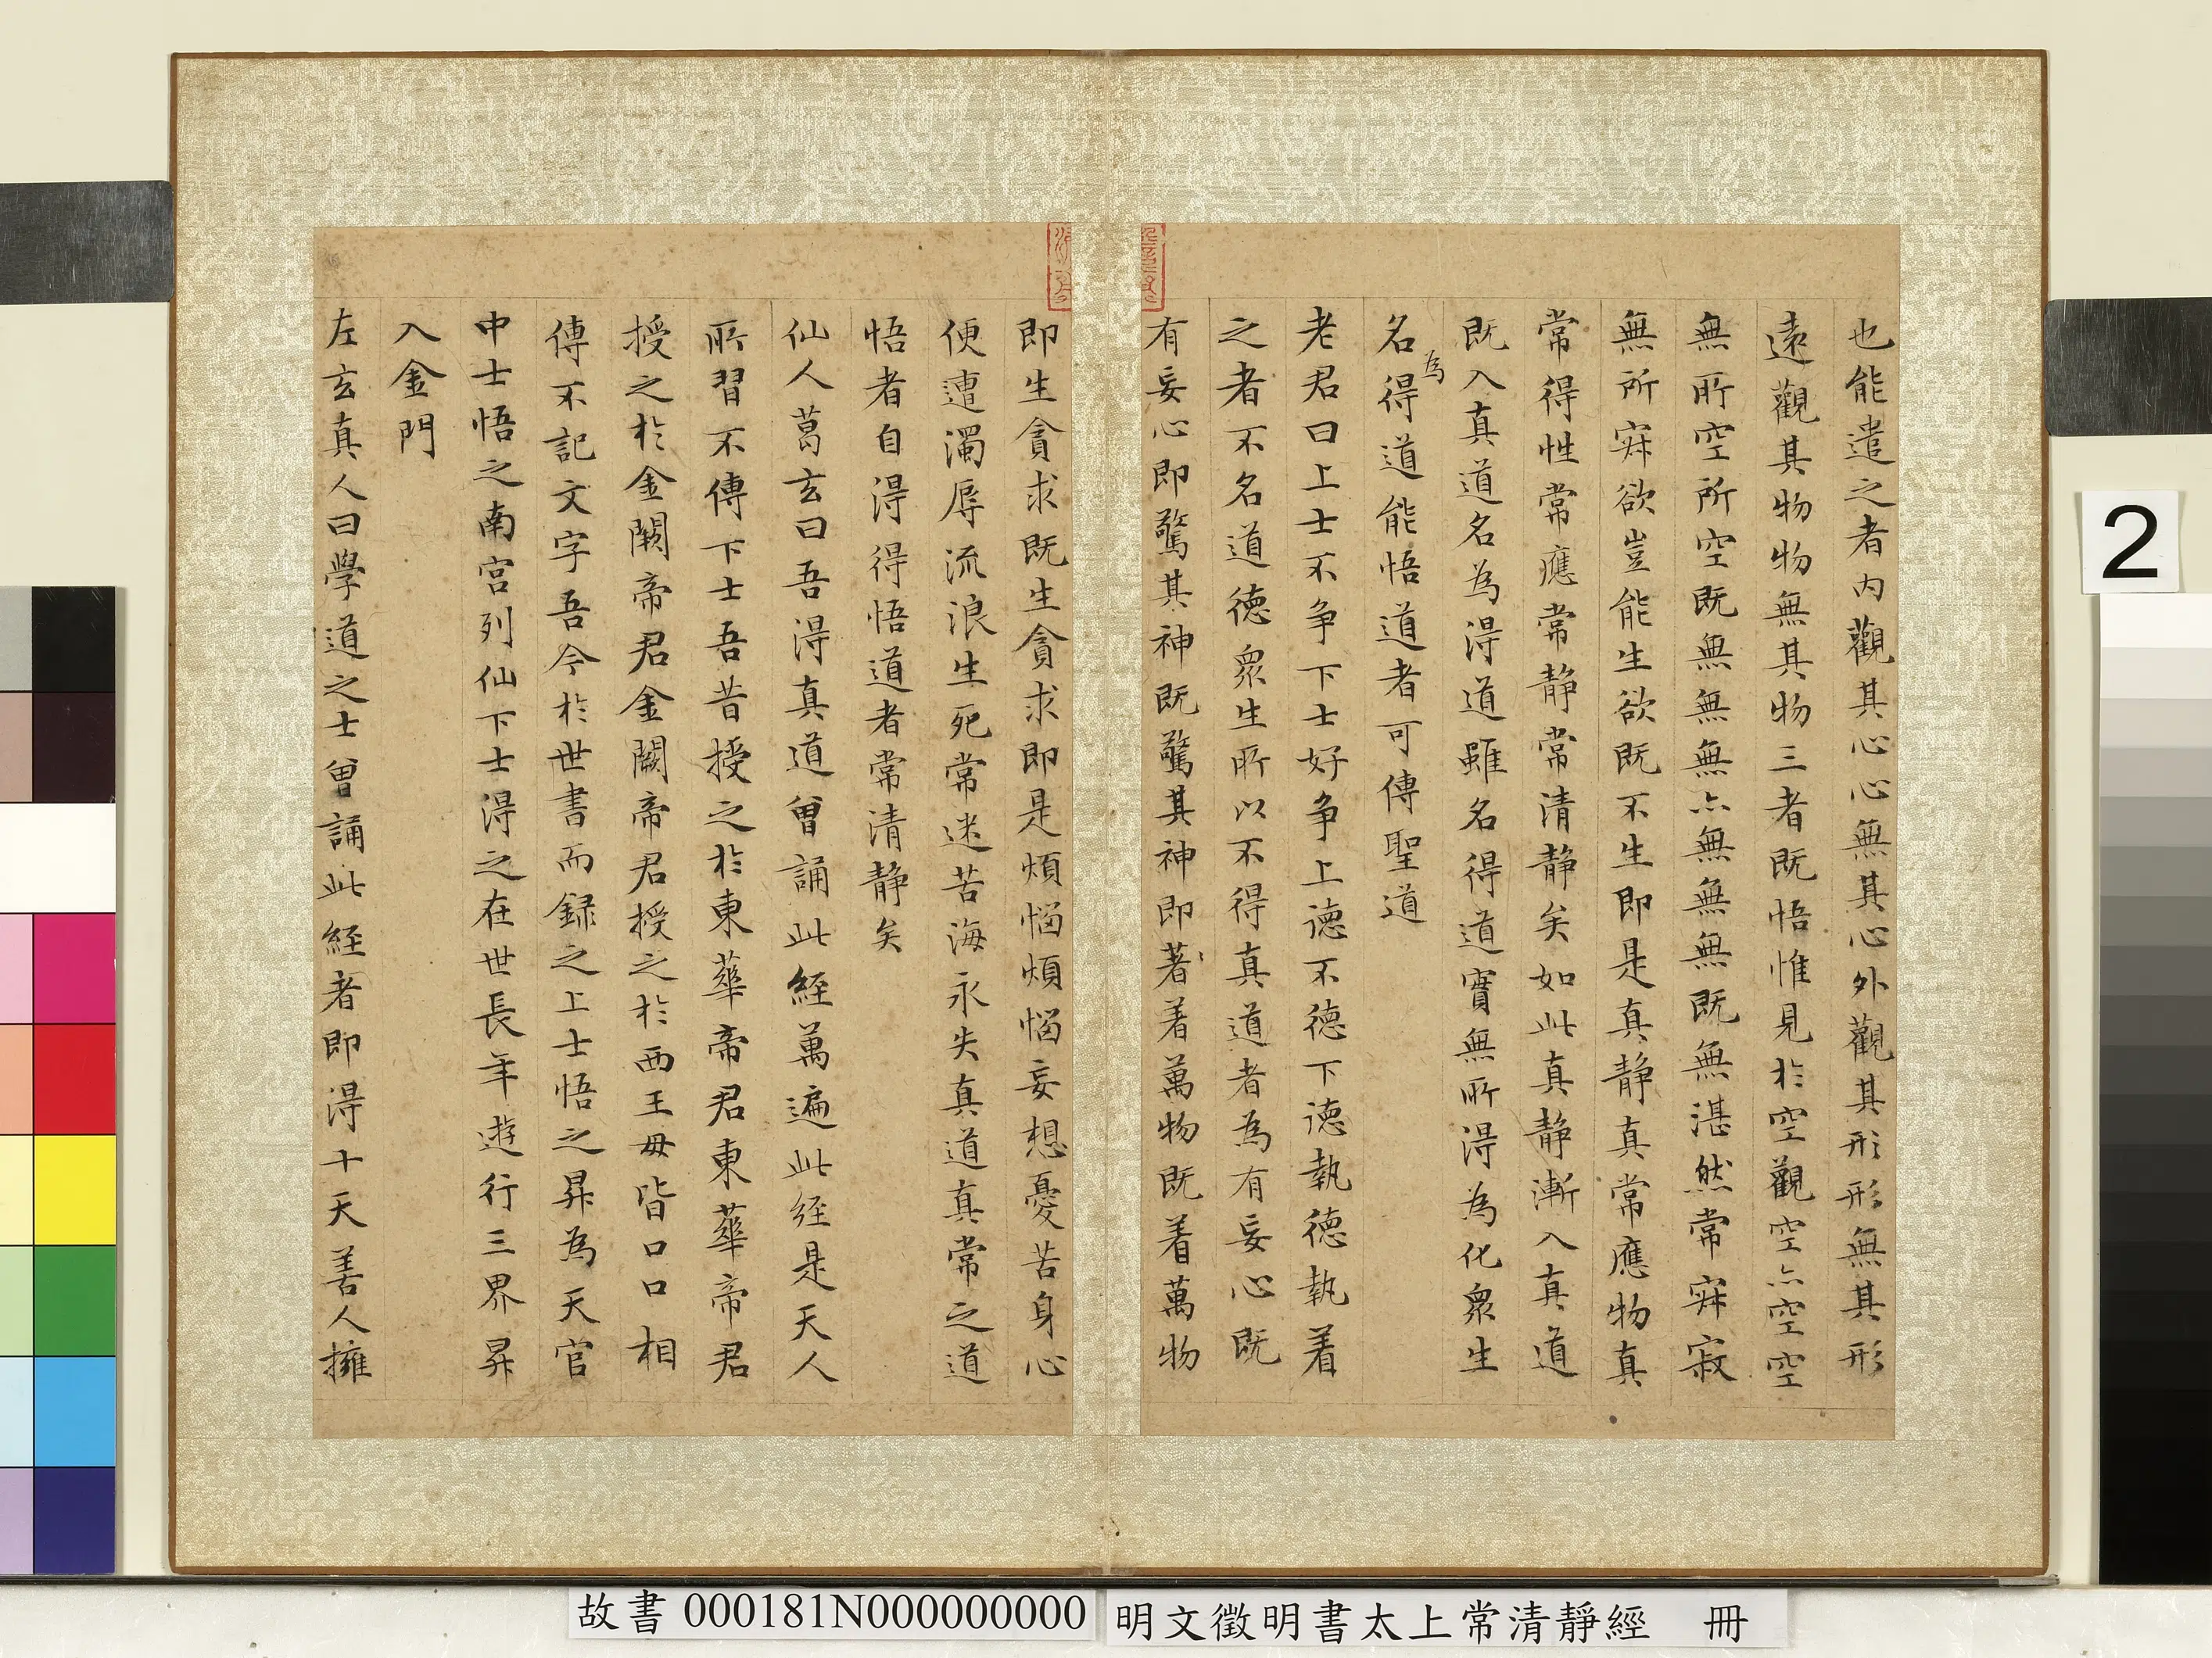 也能遣之者内觀其心心無其心外觀其形形無其形
遠觀其物物無其物三者既悟惟見於空觀空亦空空
無所空所空既無無無亦無無無既無湛然常寂寂
無所寂欲豈能生欲既不生即是真静真常應物真
常得性常應常静常清静矣如此真静漸入真道
既入真道名為得道雖名得道實無所得為化衆生
名為得道能悟道者可傳聖道
老君曰上士不争下士好争上德不德下德執德執着
之者不名道德衆生所以不得真道者為有妄心既
有妄心即驚其神既驚其神即著着萬物既着萬物
即生貪求既生貪求即是煩惱煩惱妄想憂苦身心
便遭濁辱流浪生死常迷苦海永失真道真常之道
悟者自得得悟道者常清静矣
仙人葛玄曰吾得真道曾誦此經萬遍此經是天人
所習不傳下士吾昔授之於東華帝君東華帝君
授之於金闕帝君金闕帝君授之於西王母皆口口相
傳不記文字吾今於世書而録之上士悟之昇為天官
中士悟之南宫列仙下士得之在世長年遊行三界昇
入金門
左玄真人曰學道之士曾誦此經者即得十天善人擁
2
故書 000181N000000000
明文徵明書太上常清靜經 冊